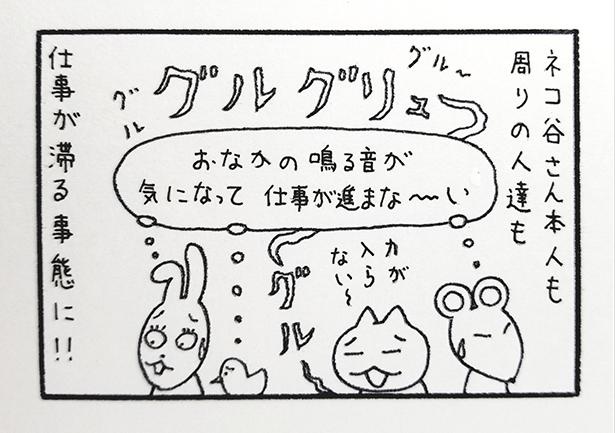 ネコ谷さん本人も
周りの人達も
グル〜
グルグリュ〜
グル
おなかの鳴る音が
気になって 仕事が進まな〜い
力が
入ら
ない〜
グル
仕事が滞る事態に!!